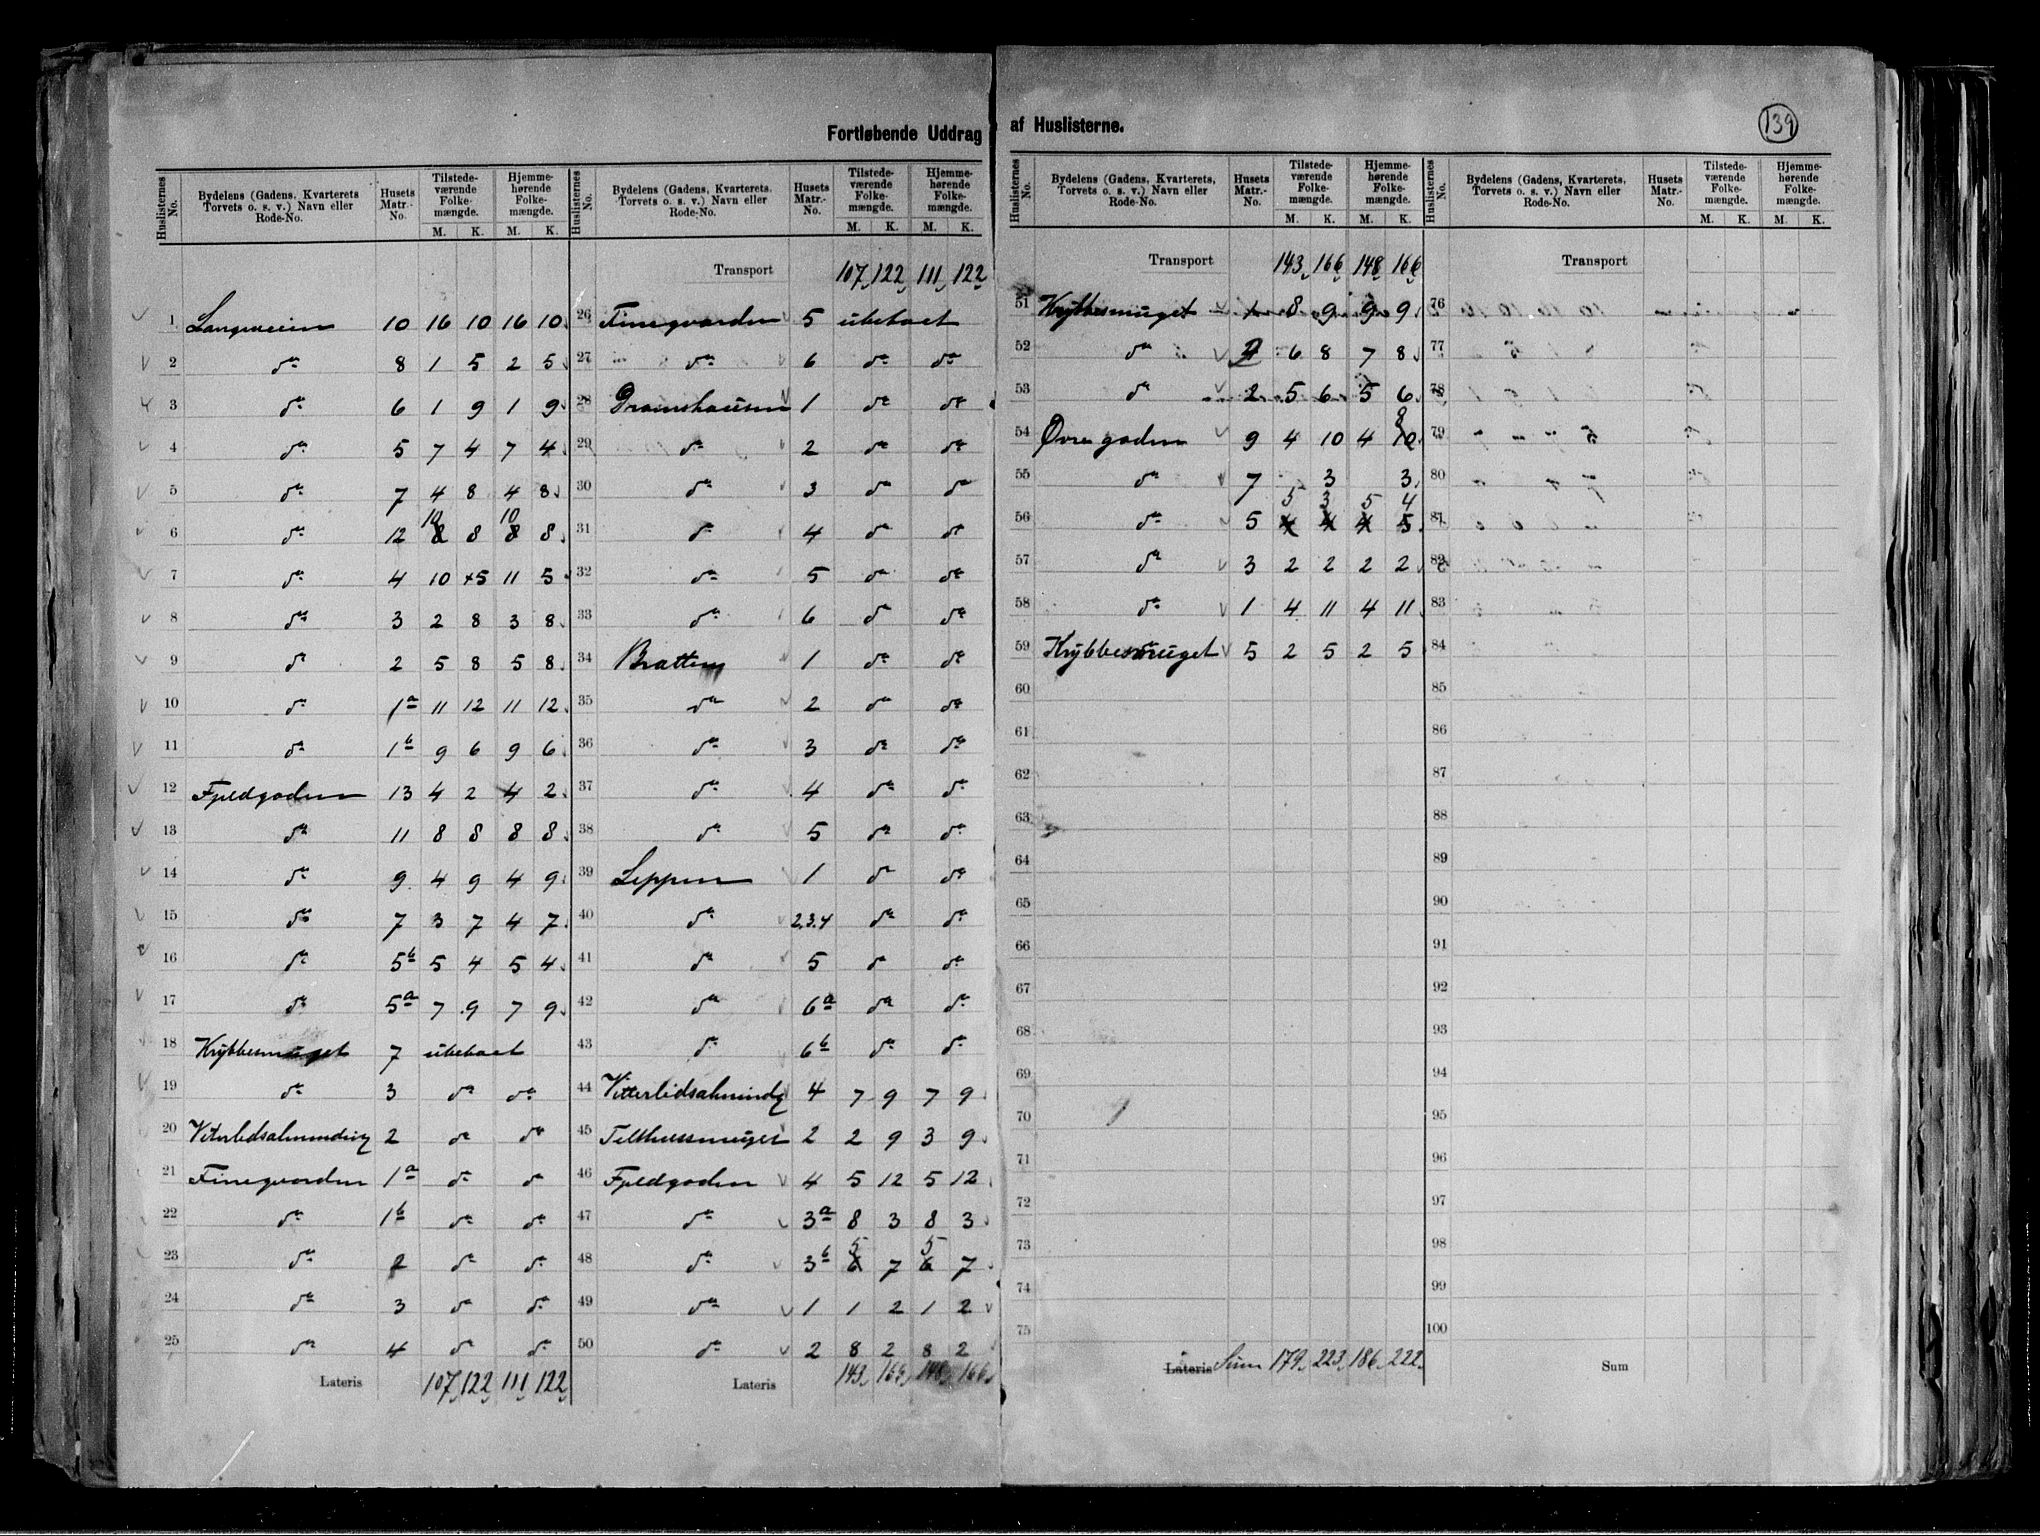 Fortløbende Uddrag af Huslisterne.
139
Huslisternes No. | Bydelens (Gadens, Kvarterets, Torvets o. s. v.) Navn eller Rode-No. | Husets Matr.-No. | Tilstedeværende Folkemængde. M. K. | Hjemmehørende Folkemængde. M. K.
1 Langeveien 10 16 10 16 10
2 do 8 1 5 2 5
3 do 6 1 9 1 9
4 do 5 7 4 7 4
5 do 7 4 8 4 8
6 do 12 10 8 8 10 8 8
7 do 4 10 5 11 5
8 do 3 2 8 3 8
9 do 2 5 8 5 8
10 do 1a 11 12 11 12
11 do 1b 9 6 9 6
12 Fjeldgaden 13 4 2 4 2
13 do 11 8 8 8 8
14 do 9 4 9 4 9
15 do 7 3 7 4 7
16 do 5b 5 4 5 4
17 do 5a 7 9 7 9
18 Krybbesmuget 7 ubeboet
19 do 3 do do
20 Viterlidsalmending 2 do do
21 Finegaarden 1a do do
22 do 1b do do
23 do 2 do do
24 do 3 do do
25 do 4 do do
Lateris 107 122 111 122
Huslisternes No. | Bydelens (Gadens, Kvarterets, Torvets o. s. v.) Navn eller Rode-No. | Husets Matr.-No. | Tilstedeværende Folkemængde. M. K. | Hjemmehørende Folkemængde. M. K.
Transport 107 122 111 122
26 Finegaarden 5 ubeboet
27 do 6 do do
28 Dramshausen 1 do do
29 do 2 do do
30 do 3 do do
31 do 4 do do
32 do 5 do do
33 do 6 do do
34 Bratten 1 do do
35 do 2 do do
36 do 3 do do
37 do 4 do do
38 do 5 do do
39 Leppen 1 do do
40 do 2.3.4 do do
41 do 5 do do
42 do 6a do do
43 do 6b do do
44 Vitterlidsalmindg 4 7 9 7 9
45 Telthussmuget 2 2 9 3 9
46 Fjeldgaden 4 5 12 5 12
47 do 3a 8 3 8 3
48 do 3b 5 6 7 5 6 7
49 do 1 1 2 1 2
50 do 2 8 2 8 2
Lateris 143 166 148 166
Huslisternes No. | Bydelens (Gadens, Kvarterets, Torvets o. s. v.) Navn eller Rode-No. | Husets Matr.-No. | Tilstedeværende Folkemængde. M. K. | Hjemmehørende Folkemængde. M. K.
Transport 143 166 148 166
51 Krybbesmuget 1 8 9 9 9
52 do 6 8 7 8
53 do 2 5 6 5 6
54 Øvregaden 9 4 10 4 8 10
55 do 7 3 3
56 do 5 5 4 3 4 5 4 4 5
57 do 3 2 2 2 2
58 do 1 4 11 4 11
59 Krybbesmuget 5 2 5 2 5
60
61
62
63
64
65
66
67
68
69
70
71
72
73
74
75
Lateris Sum 179 223 186 222
Huslisternes No. | Bydelens (Gadens, Kvarterets, Torvets o. s. v.) Navn eller Rode-No. | Husets Matr.-No. | Tilstedeværende Folkemængde. M. K. | Hjemmehørende Folkemængde. M. K.
Transport
76
77
78
79
80
81
82
83
84
85
86
87
88
89
90
91
92
93
94
95
96
97
98
99
100
Sum